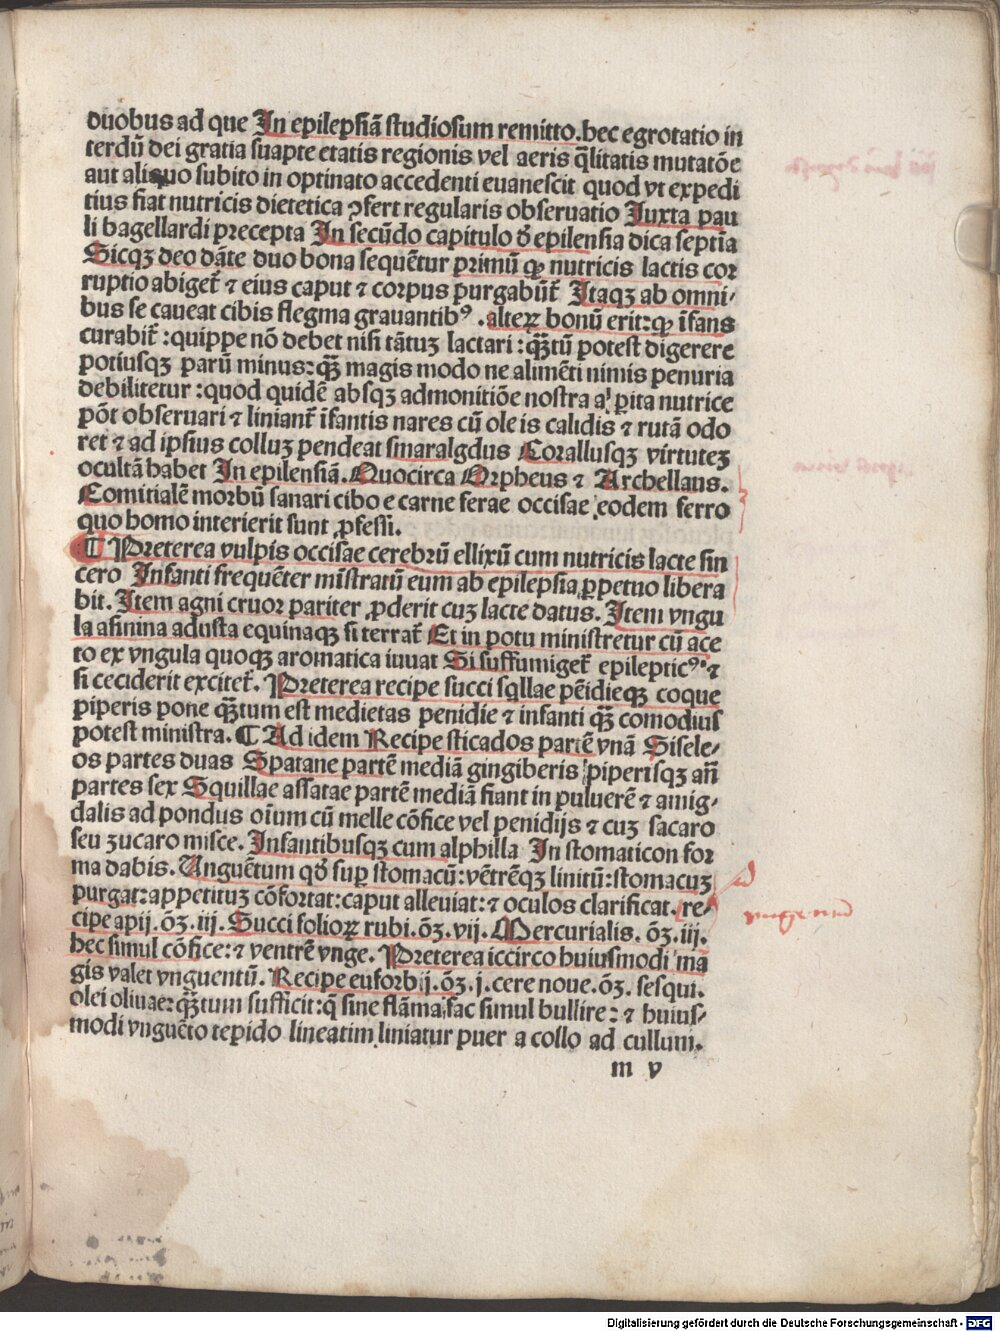 duobus ad que In epilepsiā studiosum remitto.hec egrotatio in
terdū dei gratia suapte etatis regionis vel aeris q̄litatis mutatōe
aut aliquo subito in optinato accedenti euanescit quod vt expedi
tius fiat nutricis dietetica ꝯfert regularis obseruatio Iuxta pau
li bagellardi precepta In secūdo capitulo đ epilensia dica septīa
Sicqꝫ deo dāte duo bona sequētur primū ꝙ nutricis lactis cor
ruptio abiget̄ ⁊ eius caput ⁊ corpus purgabūt̄ Itaqꝫ ab omni⸗
bus se caueat cibis flegma grauantibꝰ .alteꝝ bonū erit:ꝙ īfans
curabit̄ :quippe nō debet nisi tātuꝫ lactari :qꝫ̄tū potest digerere
potiusqꝫ parū minus:qꝫ̄ magis modo ne alimēti nimis penuria
debilitetur :quod quidē absqꝫ admonitiōe nostra aˡ ꝑita nutrice
pōt obseruari ⁊ liniant̄ īfantis nares cū ole is calidis ⁊ rutā odo
ret ⁊ ad ipsius colluꝫ pendeat smaralgdus Corallusqꝫ virtuteꝫ
ocultā habet In epilensiā. Quocirca Orpheus ⁊ Archellaus.
Comitialē morbū sanari cibo e carne ferae occisae eodem ferro
quo homo interierit sunt ꝓfessi.
¶ Preterea vulpis occisae cerebrū ellixū cum nutricis lacte sin
cero Infanti frequēter mīstratū eum ab epilepsia ꝑpetuo libera
bit. Item agni cruor pariter ꝓderit cuꝫ lacte datus. Item vngu
la asinina adusta equinaqꝫ si terrat̄ Et in potu ministretur cū ace
to ex vngula quoqꝫ aromatica iuuat Si suffumiget̄ epilepticꝰ ⁊
si ceciderit excitet̄. Preterea recipe succi sq̄llae pēidieqꝫ coque
piperis pone qꝫ̄tum est medietas penidie ⁊ infanti qꝫ̄ comodius
potest ministra. ¶ Ad idem Recipe sticados partē vnā Sisele⸗
os partes duas Spatane partē mediā gingiberis piperisqꝫ añ
partes sex Squillae assatae partē mediā fiant in puluerē ⁊ amig⸗
dalis ad pondus oīum cū melle cōfice vel penidijs ⁊ cuꝫ sacaro
seu zucaro misce. Infantibusqꝫ cum alphilla In stomaticon for
ma dabis. Unguētum qđ suꝑ stomacū:vētrēqꝫ linitū:stomacuꝫ
purgat:appetituꝫ cōfortat:caput alleuiat:⁊ oculos clarificat. re⸗
cipe apij .ōꝫ. iij. Succi folioꝝ rubi .ōꝫ. vij. Mercurialis. ōꝫ. iij.
hec simul cōfice:⁊ ventrē vnge. Preterea iccirco huiusmodi ma
gis valet vnguentū. Recipe euforb j. ōꝫ. j. cere noue .ōꝫ. sesqui.
olei oliuae:qꝫ̄tum sufficit:q̄ sine flāma fac simul bullire: ⁊ huius⸗
modi vnguēto tepido lineatim liniatur puer a collo ad cullum.
m v
Digitalisierung gefördert durch die Deutsche Forschungsgemeinschaft - DFG